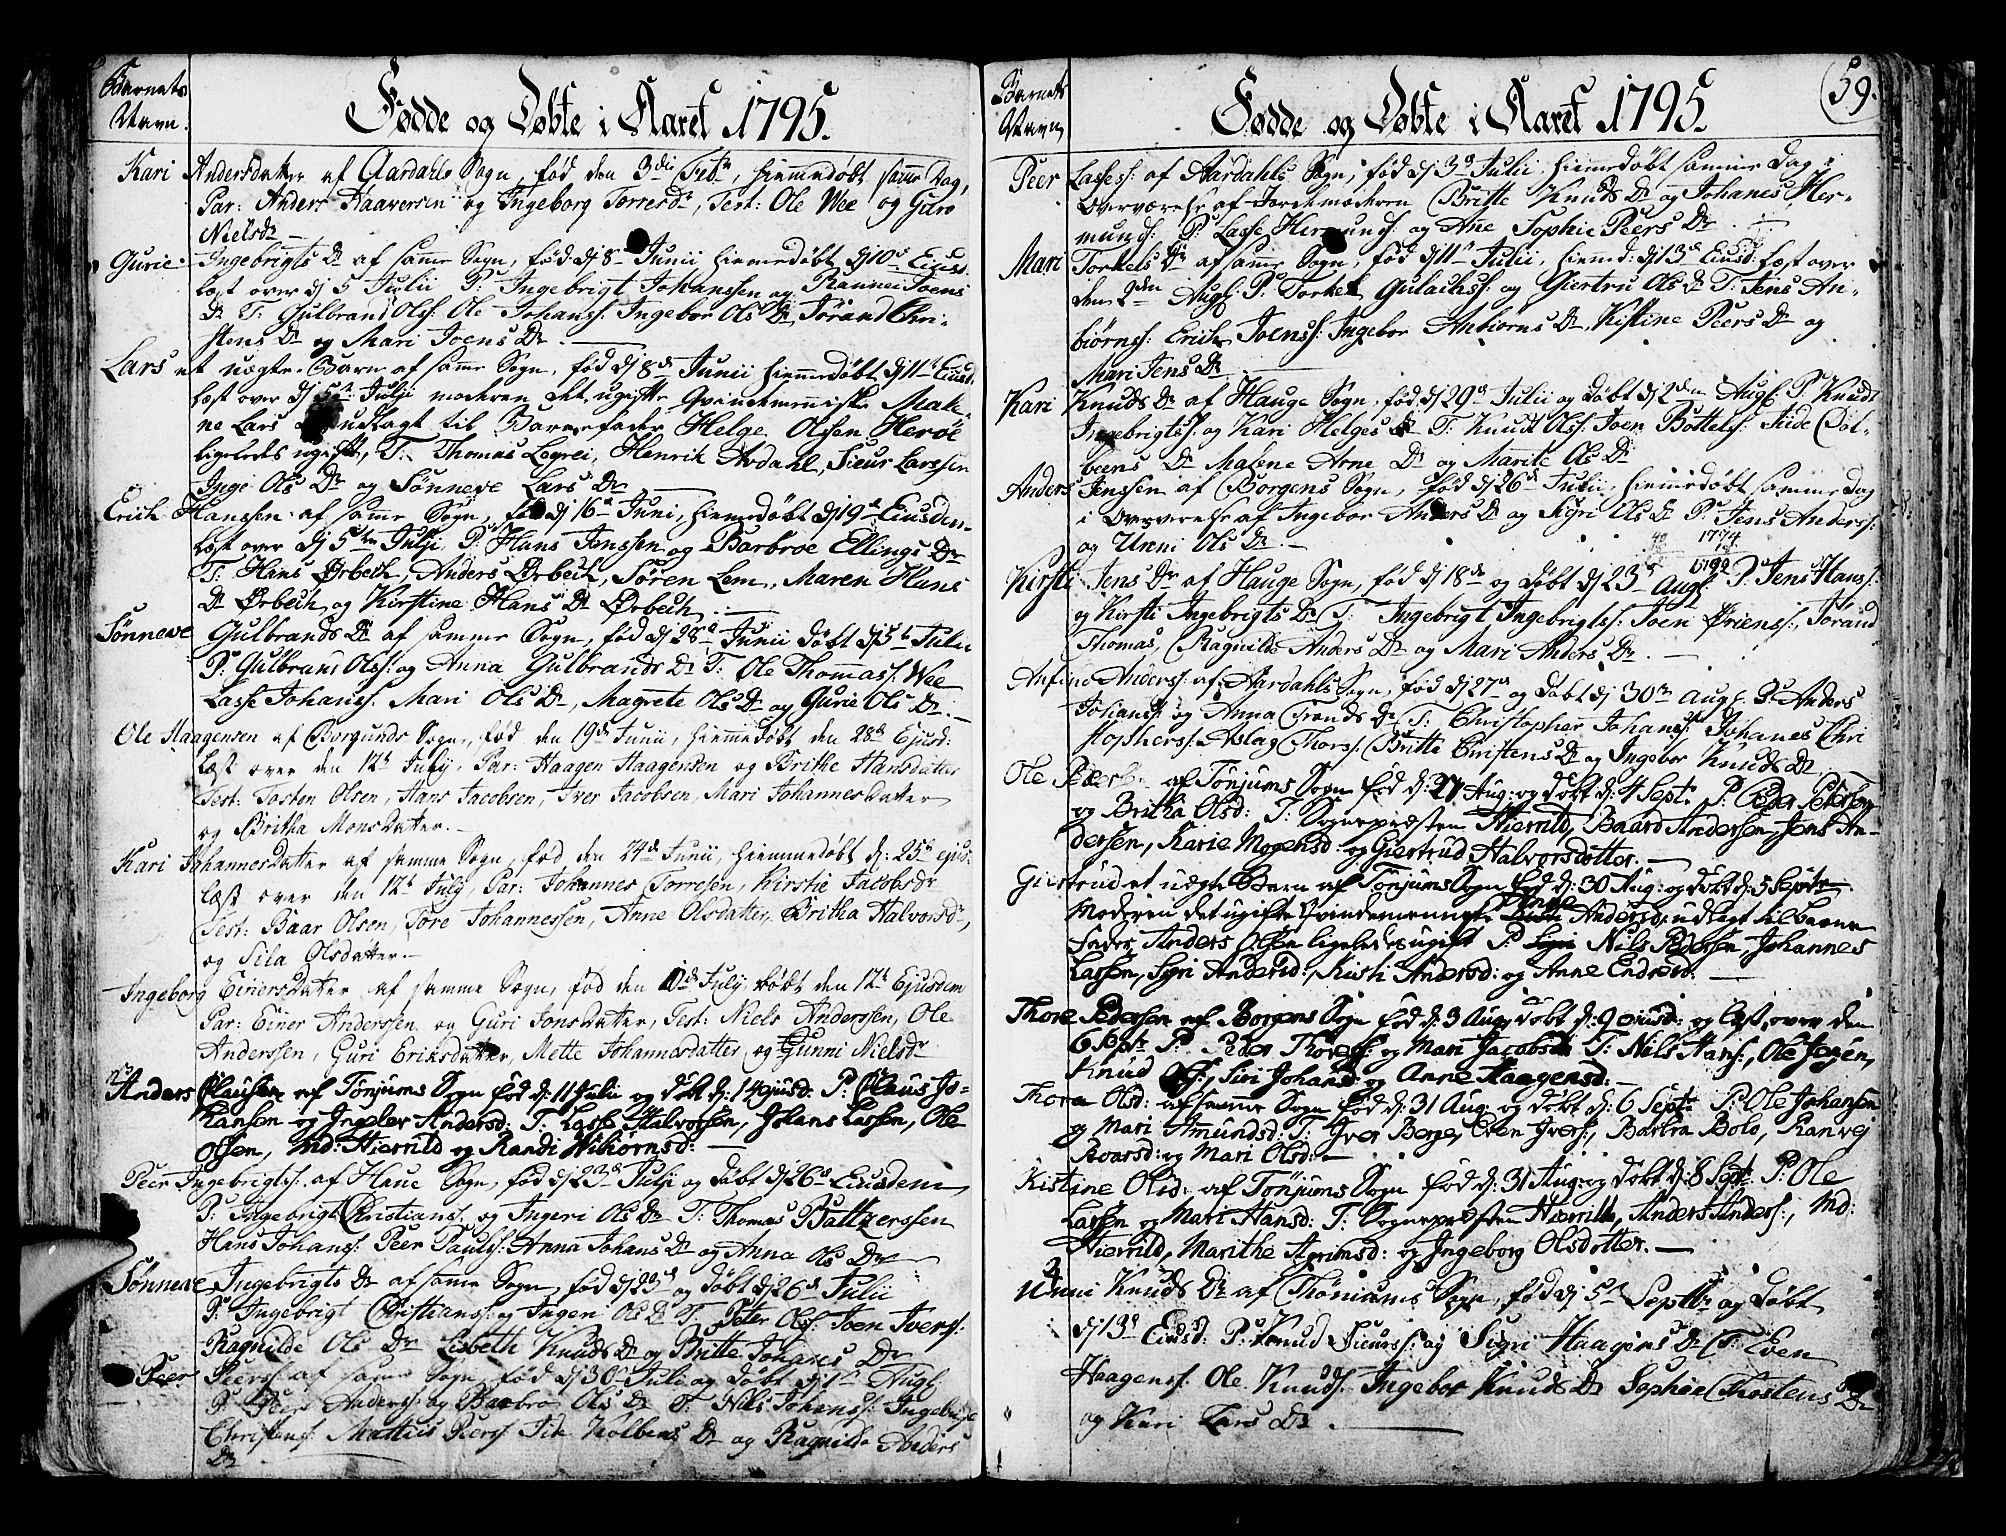 Barnets
Navn.
Fødde og Døbte i Aaret 1795.
Kari Andersdatter af Aardahls Sogn, fød den 3die Febr, hiemmedøbt samme Dag,
Par: Anders Haaversen og Ingeborg Torresdr, Test: Ole Wee og Guro
Nielsdr
Gurie Ingebrigts Dr af samme Sogn, fød dj 8 Junii hiemedøbt dj 10 Eiusd.
læst over dj 5 Julii P: Ingebrigt Johanssen og Rannei Joens
Dr T: Gulbrand Olss: Ole Johans: Ingebor Ols Dr Jørand Chri-
stens Dr og Mari Joens Dr
Lars et uægte Barn af same Sogn, fød dj 8de Junii hiemmedøbt dj 11t Eiusd.
læst over dj 5te Julii moderen det ugifte Qvindemenniske Male-
ne Lars udlagt til Barnefader Helge Olssen Herøe
ligeledes ugift, T: Thomas Legrei, Henrik Avdahl, Sieur Larssen
Inge Ols Dr og Sønneve Lars Dr
Erich Hanssen af samme Sogn, fød dj 16 Juni, hiemedøbt dj 19 Eiusdem
læst over dj 5te Julii P: Hans Jenssen og Barbroe Ellings Dr
T: Hans Ørbech, Anders Ørbech, Søren Lem, Maren Hans
Dr Ørbech og Kirstine Hans Dr Ørbech.
Sønneve Gulbrands Dr af samme Sogn, fød dj 28 Junii døbt dj 5t Julii
P: Gulbrand Olss: og Anna Gulbrands Dr T: Ole Thomass: Wee
Lasse Johanss: Mari Ols Dr, Magrete Ols Dr og Gurie Ols Dr.
Ole Haagensen af Borgunds Sogn, fød den 19de Junii, hiemmedøbt den 28de Ejusd:
læst over den 12te July, Par: Haagen Haagensen og Brithe Hansdatter
Test: Tosten Olsen, Hans Jacobsen, Iver Jacobsen, Mari Johannesdatter
og Britha Monsdatter.
Kari Johannesdatter af samme Sogn, fød den 24de Junii, hiemmedøbt d: 25 ejus.
læst over den 12te July, Par: Johannes Torresen, Kirstie Jacobsdr
Test: Baar Olsen, Tore Johannessen, Anne Olsdatter, Britha Halvorsdr,
og Sila Olsdatter.
Ingeborg Einersdatter af samme Sogn, fød den July, døbt den 12te Ejusdem
Par: Einer Anderssen og Guri Jonsdatter, Test: Niels Anderssen, Ole
Anderssen, Guri Eriksdatter, Mette Johannesdatter og Gunni Nielsdr
Anders Clausen af Tønjums Sogn fød d: 11 Julii og døbt d: 14 ejusd: P: Claus Jo-
hansen og Ingebor Andersd: T: Lasse Halvorsen, Johans Lassen, Ole
Olsen, Md: Hierrild og Randi
Peer Ingebrigtss: af Haue Sogn, fød dj 23 Julii og døbt dj 26 Eiusdem
P: Ingebrigt Christianss: og Ingeri Ols Dr T: Thomas Baltzerssen
Hans Johanss: Peer Paulss: Anna Johans Dr og Anna Ols Dr
Sønneve Ingebrigts Dr af same Sogn, fød dj 23 og døbt dj 26 Julii
P: Ingebrigt Christianss: og Ingeri Ols Dr T: Peter Olss: Joen Ivers:
Ragnilde Ols Dr Lisbeth Knuds Dr og Britte Johans Dr
Peer Peerss: af same Sogn, fød dj 30 Juli og døbt dj 1t Aug:
P: Peer Anderss: og Barbro Ols Dr T: Nils Johanss: Ingebrigt
Christens: Mattias Peerss: Kolbens Dr og Ragnilde Anders
Dr
Barnets
Navn
Fødde og Døbte i Aaret 1795.
59.
Peer Lassess: af Aardahls Sogn, fød dj 3 Julii hiemedøbt samme Dag i
Overværelse af Jordemoderen Britte Knuds Dr og Johanes Her-
munds: P: Lasse Hermunds: og Ane Sophie Peers Dr
Mari Torkels Dr af same Sogn, fød dj 11 Julii, hiemd: dj 13 Eiusd: læst over
den 2den Aug: P: Torkel Gulachs: og Giertru Ols Dr T: Jens An-
biørns: Erich Joenss: Ingebor Anbiørns Dr, Kistine Peers Dr og
Mari Jens Dr
Kari Knuds Dr af Hauge Sogn, fød dj 29 Julii og døbt dj 2den Aug: P: Knud
Ingebrigtss: og Kari Helges Dr T: Knud Olss: Joen Bottelss:
Dr Malene Arne Dr og Marite Ols Dr
Anders Jenssen af Borgens Sogn, fød dj 26 Julii, hiemedøbt samme Dag
i Overværelse af Ingebor Anders Dr og Sigri Ols Dr P: Jens Anderss:
og Unni Ols Dr.
40 1774
Kirsti Jens Dr af Hauge Sogn, fød dj 18de og døbt dj 23 Aug: P: Jens Hanss:
og Kirsti Ingebrigts Dr T: Ingebrigt Ingebrigtss: Joen Ørienss:, Jorand
Thomas, Ragnilde Anders Dr og Mari Anders Dr.
Anfind Anderss: af Aardahls Sogn, fød dj 27 og døbt dj 30 Aug: P: Anders
Johanss: og Anna Tronds Dr T: Christopher Johanss: Johanes Chri
stopherss: Aslag Thorss: Britte Christens Dr og Ingebor Knuds Dr
Ole af Tønjums Sogn fød d: 27 Aug: og døbt d: 4 Septr P: Peder Petersen
og Britha Olsd: T: Sognepræsten Hierrild, Baard Andersen, Jens An-
dersen, Karie Mogensd: og Giertrud Halvorsdotter.
Giertrud et uægte Barn af Tønjums Sogn fød d: 30 Aug: og døbt d: 5 Septr
Moderen det ugifte Qvindemenneske Andersd: udlagt til barne
fader Anders Olsen ligeledes ugift P: Nils Pedersen, Johannes
Lassen, Siri Andersd:, Kisti Andersd: og Anne Endresd.
Thore Pedersen af Borgens Sogn fød d: 3 Aug, døbt d: 9 ejusd: og læst over den
6 Septr P: Peder Thoress: og Mari Jacobsd: T: Nils Hans:, Ole Joen,
Knud Ols:, Siri Johansd og Anne Haagensd:
Thora Olsd: af samme Sogn fød d: 31 Aug: og døbt d: 6 Septr P: Ole Johansen
og Mari Amundsd: T: Iver Berge, Even Ivers:, Barbra Bolo, Ranvej
Roarsd: og Mari Olsd:
Kistine Olsd: af Tønjums Sogn fød d: 31 Aug: og døbt d: 8 Septr P: Ole
Lassen og Mari Hansd: T: Sognepræsten Hierrild, Anders Anders:, Md:
Hierrild, Marithe Agrimsd: og Ingeborg Olsdotter.
Unni Knuds Dr af Thøniums Sogn, fød dj 5t Septbr og døbt
dj 13 Eiusd: P: Knud Sieurs: og Sigri Haagens Dr T: Even
Haagenss: Ole Knuds: Ingebor Knuds Dr Sophie Thostens Dr
og Kari Lars Dr.